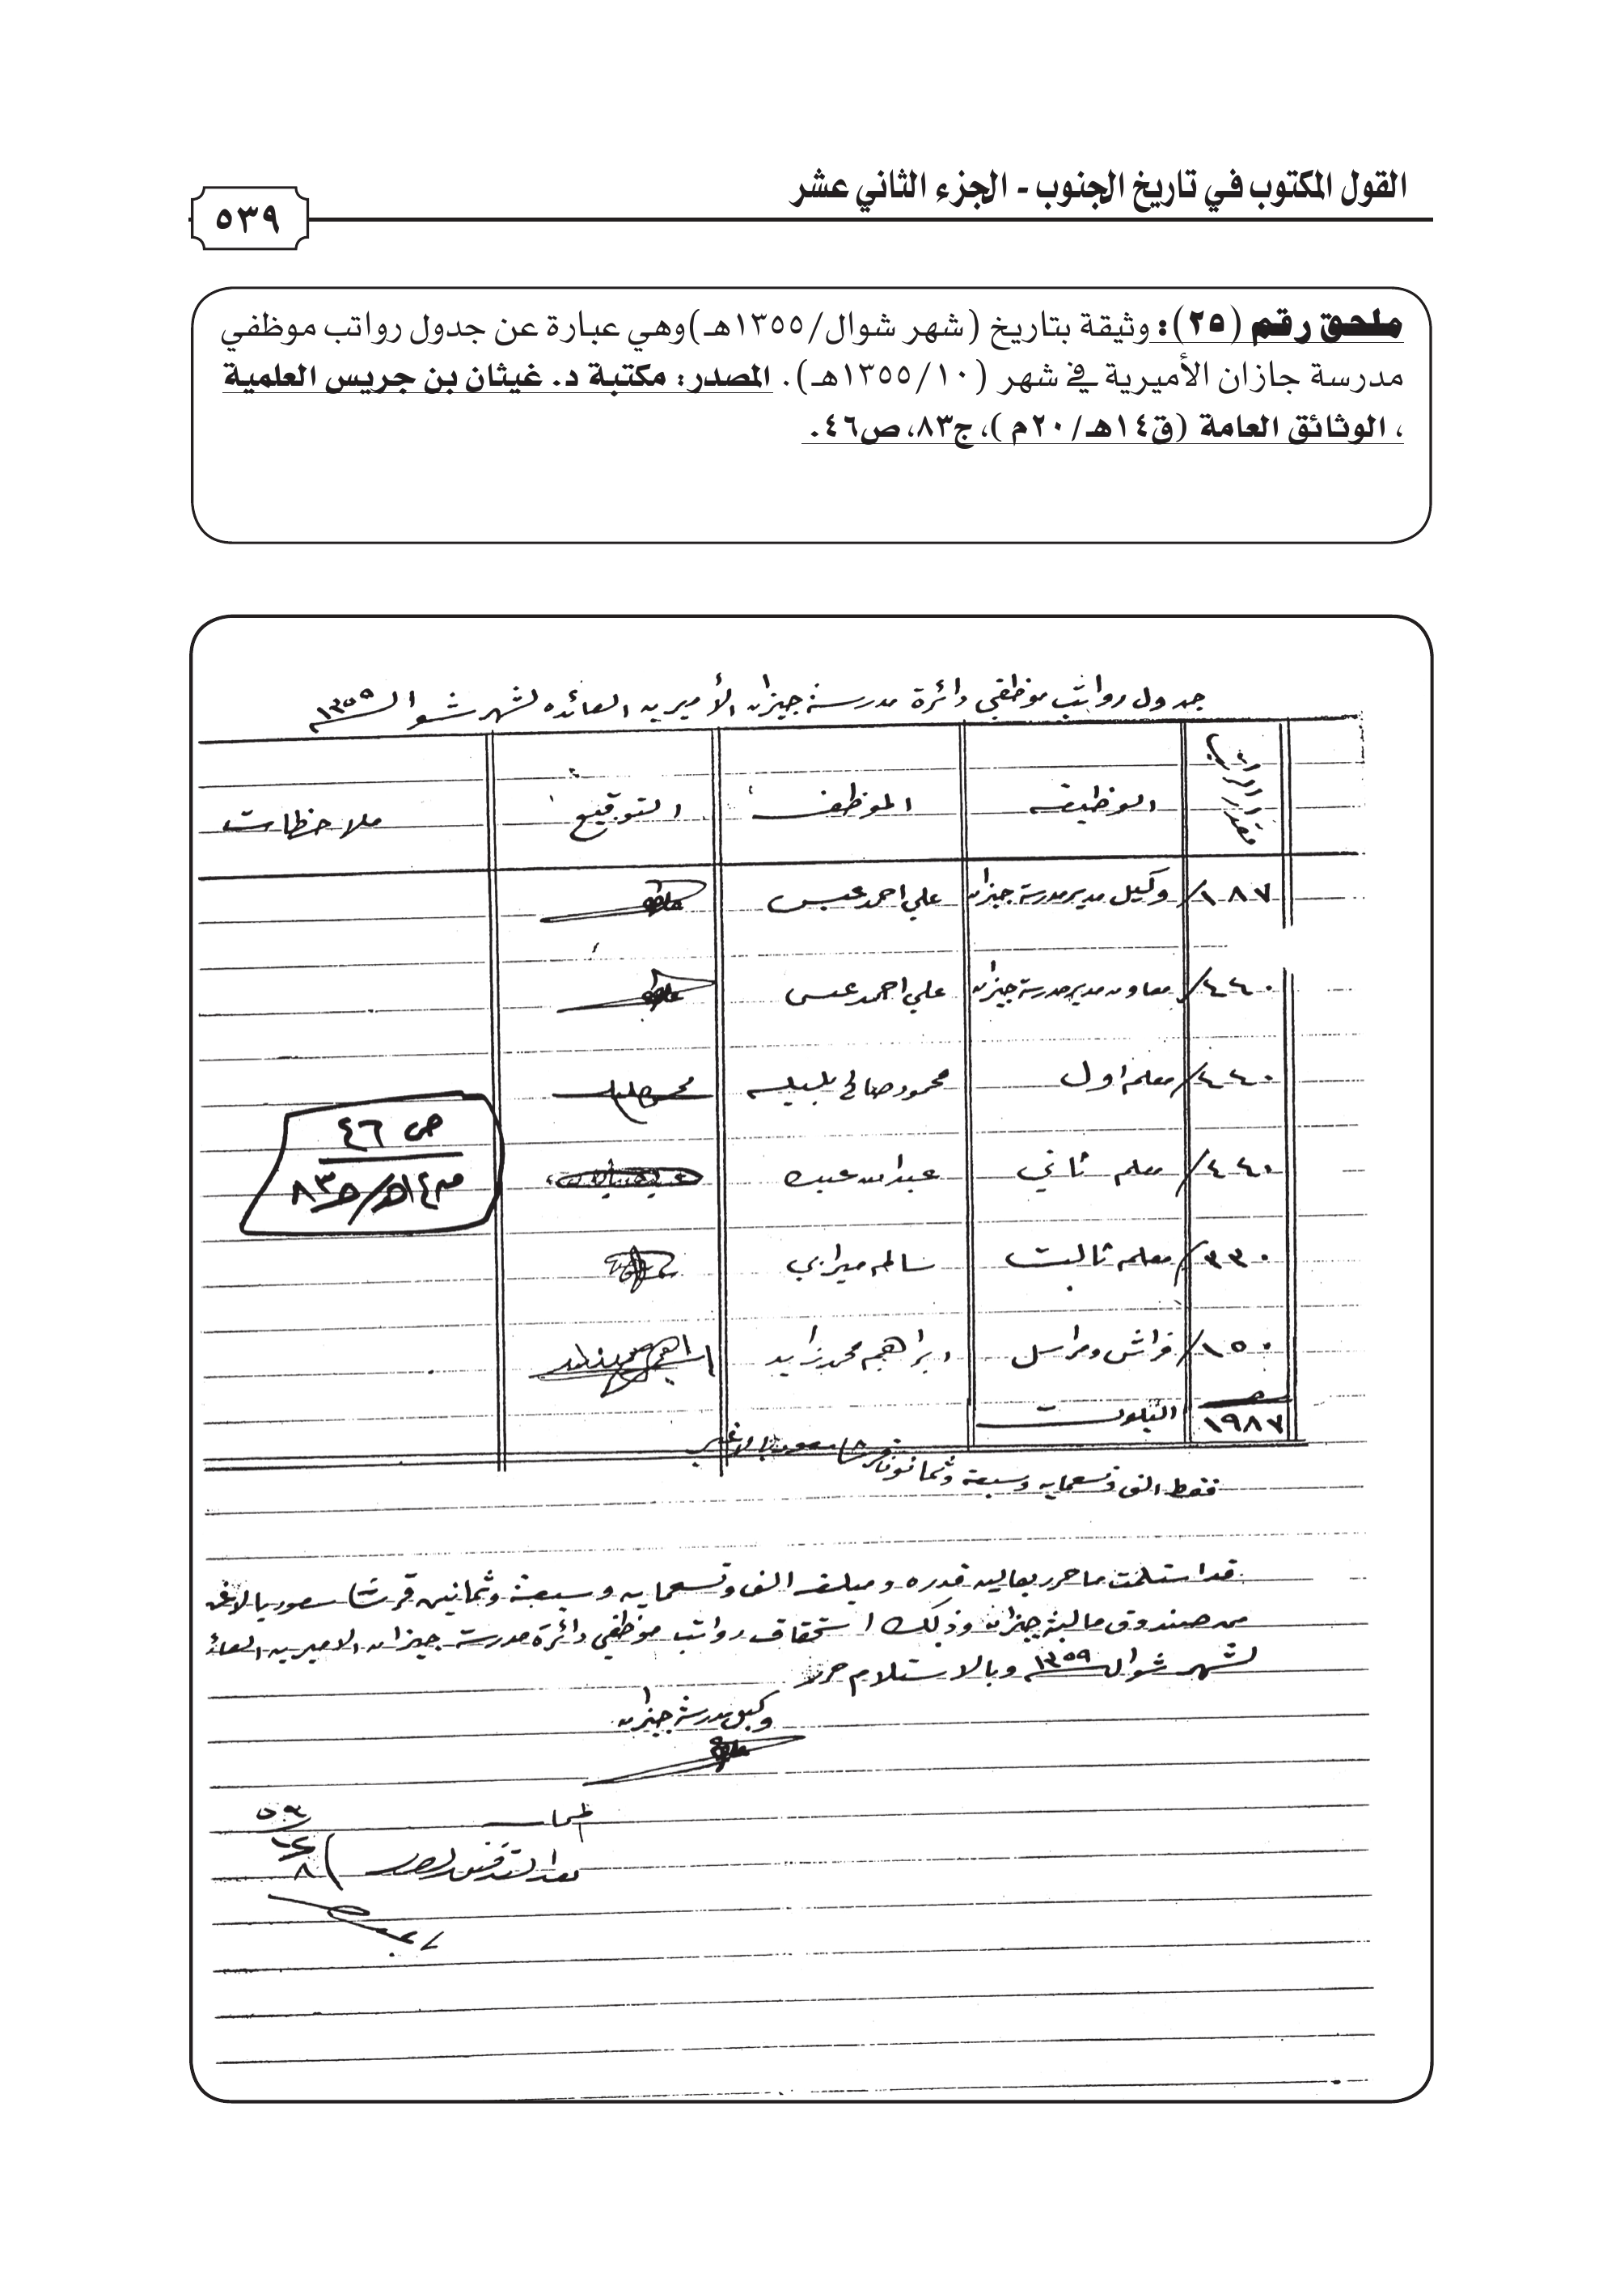 القول المكتوب في تاريخ الجنوب - الجزء الثاني عشر
٥٣٩
ملحق رقم (٢٥): وثيقة بتاريخ (شهر شوال/١٣٥٥هـ) وهي عبارة عن جدول رواتب موظفي
مدرسة جازان الأميرية في شهر (١٣٥٥/١٠هـ). المصدر: مكتبة د. غيثان بن جريس العلمية
، الوثائق العامة (ق١٤هـ/٢٠م)، ج٨٣، ص٤٦.
جدول رواتب موظفي دائرة مدرسة جيزان الأميريه العائده لشهر شوال ١٣٥٩
الوظيفه الموظف التوقيع ملاحظات
١٨٧/ وكيل مدير مدرسة جيزان علي احمد عيسى
٤٤٠/ معاون مدير مدرسة جيزان علي احمد عيسى
٤٤٠/ معلم اول محمود صالح
٤٤٠/ معلم ثاني عبدالله
٣٣٠/ معلم ثالث سالم
١٥٠/ فراش ومراسل ابراهيم محمد زايد
١٩٨٧
ص ٤٦
فقط الف وتسعمايه وسبعة وثمانون قرشا سعوديا لا غير
قد استلمت ما حرر بعاليه قدره ومبلغه الف وتسعمايه وسبعة وثمانين قرشا سعوديا لاغير
من صندوق مالية جيزان وذلك استحقاق رواتب موظفي دائرة مدرسة جيزان الاميريه
لشهر شوال ١٣٥٩ وبالاستلام حرر
وكيل مدرسة جيزان